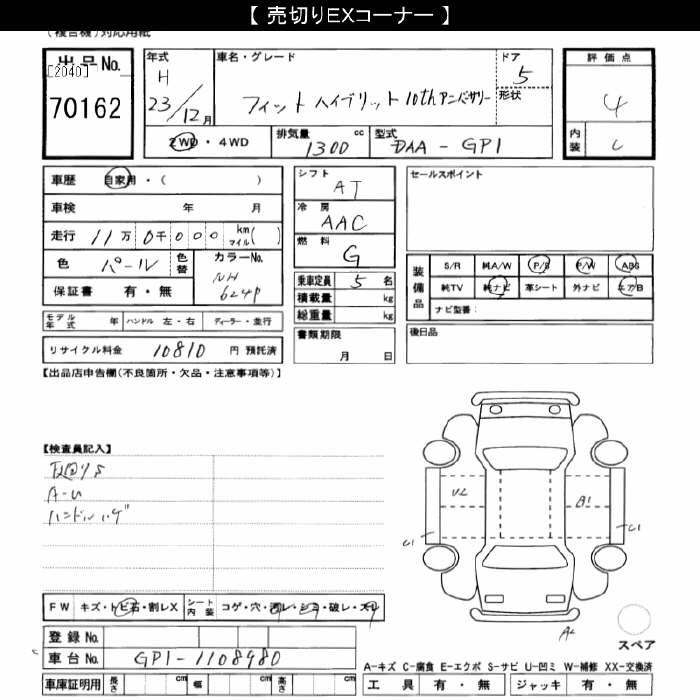 【 売切りEXコーナー 】
(複合機)対応用紙
出品No.
[2040]
70162
年式
H
23/12月
車名・グレード
フィット ハイブリット 10th アニバーサリー
ドア
5
形状
2WD・4WD
排気量 cc
1300
型式
DAA-GP1
評価点
4
内装
C
車歴 自家用・( )
車検 年 月
走行 11万0千000 km マイル( )
色 パール 色替 カラーNo. NH 624P
保証書 有・無
シフト
AT
冷房
AAC
燃料
G
乗車定員 5 名
積載量 kg
総重量 kg
書類期限
月 日
セールスポイント
装備品
S/R 純A/W P/S P/W ABS
純TV 純ナビ 革シート 外ナビ エアB
ナビ型番:
後日品
モデル年式 年 ハンドル 左・右 ディーラー・並行
リサイクル料金 10810 円 預託済
【出品店申告欄(不良箇所・欠品・注意事項等)】
【検査員記入】
A-U
ハンドルハゲ
U2
A1
C1
C1
A2
スペア
FW キズ・トビ石・割レX シート内装 コゲ・穴・汚レ・シミ・破レ・スレ
登録No.
車台No. GP1-1108980
車庫証明用 長さ cm 幅 cm 高さ cm
A-キズ C-腐食 E-エクボ S-サビ U-凹ミ W-補修 XX-交換済
工具 有・無 ジャッキ 有・無